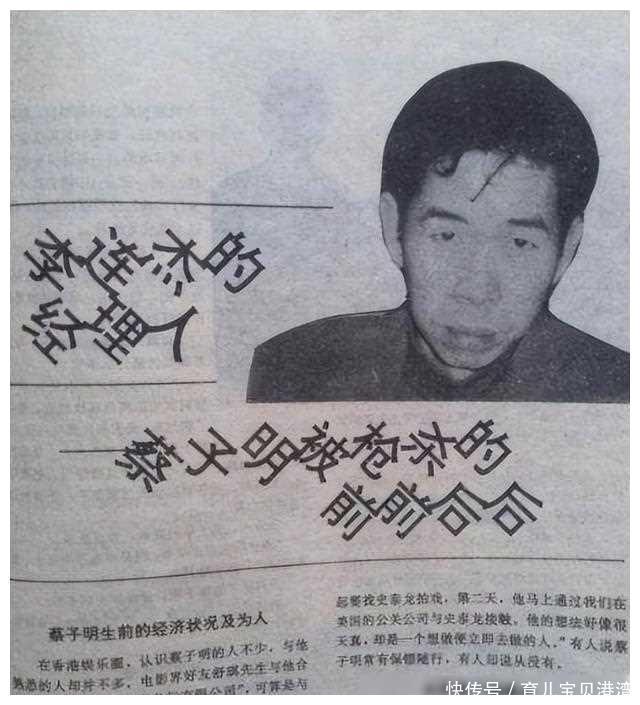 李连杰的
经理人
——蔡子明被枪杀的
前前后后
蔡子明生前的经济状况及为人
在香港娱乐圈，认识蔡子明的人不少，与他
熟悉的人却并不多，电影界好友舒琪先生与他合
有限公司”，可算是与
起要找史泰龙拍戏，第二天，他马上通过我们在
美国的公关公司与史泰龙接触，他的想法好像很
天真，却是一个想做便立即去做的人。”有人说蔡
子明常有保镖随行，有人却说从没有。
快传号／育儿宝贝港湾